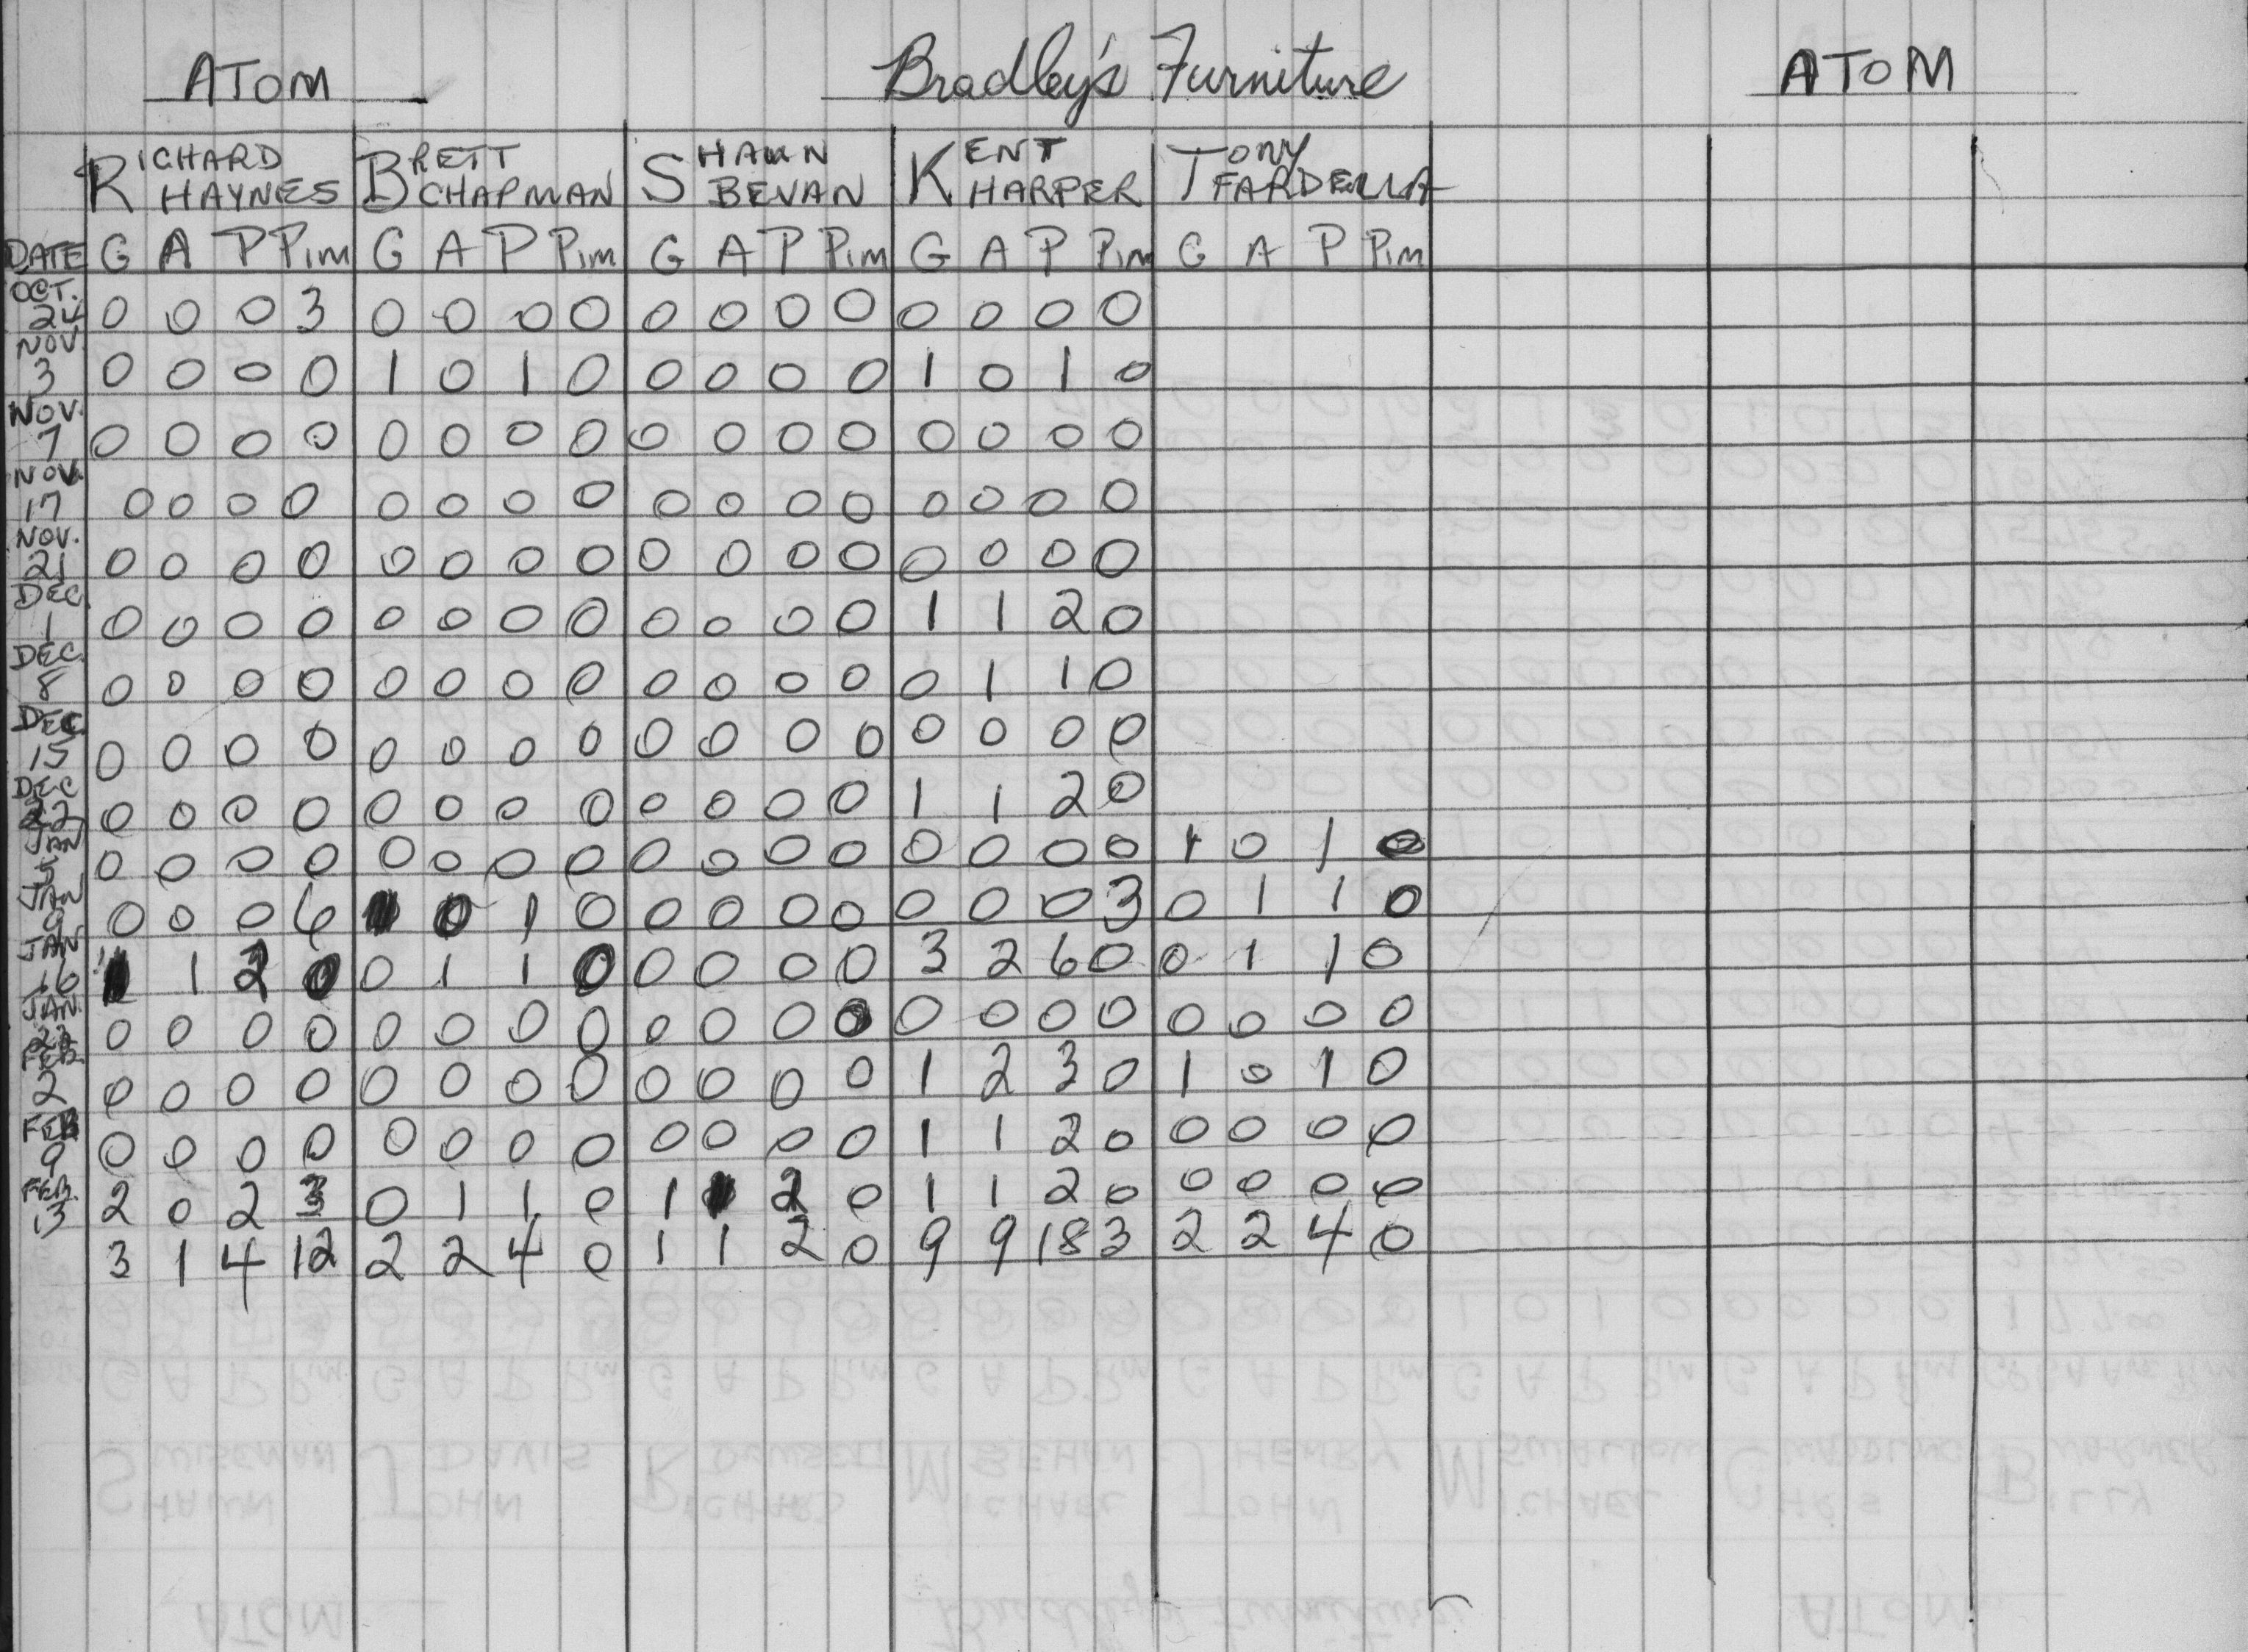 ATOM Bradley's Furniture ATOM
RICHARD HAYNES BRETT CHAPMAN SHAWN BEVAN KENT HARPER TONY FARDELLA
DATE G A P Pim G A P Pim G A P Pim G A P Pim G A P Pim
OCT. 24 0 0 0 3 0 0 0 0 0 0 0 0 0 0 0 0
NOV. 3 0 0 0 0 1 0 1 0 0 0 0 0 1 0 1 0
NOV. 7 0 0 0 0 0 0 0 0 0 0 0 0 0 0 0 0
NOV. 17 0 0 0 0 0 0 0 0 0 0 0 0 0 0 0 0
NOV. 21 0 0 0 0 0 0 0 0 0 0 0 0 0 0 0 0
DEC. 1 0 0 0 0 0 0 0 0 0 0 0 0 1 1 2 0
DEC. 8 0 0 0 0 0 0 0 0 0 0 0 0 0 1 1 0
DEC. 15 0 0 0 0 0 0 0 0 0 0 0 0 0 0 0 0
DEC 22 0 0 0 0 0 0 0 0 0 0 0 0 1 1 2 0
JAN 5 0 0 0 0 0 0 0 0 0 0 0 0 0 0 0 0 1 0 1 0
JAN 9 0 0 0 6 1 0 1 0 0 0 0 0 0 0 0 3 0 1 1 0
JAN 16 1 1 2 0 0 1 1 0 0 0 0 0 3 2 6 0 0 1 1 0
JAN. 0 0 0 0 0 0 0 0 0 0 0 0 0 0 0 0 0 0 0 0
FEB. 2 0 0 0 0 0 0 0 0 0 0 0 0 1 2 3 0 1 0 1 0
FEB 9 0 0 0 0 0 0 0 0 0 0 0 0 1 1 2 0 0 0 0 0
FEB. 13 2 0 2 3 0 1 1 0 1 1 2 0 1 1 2 0 0 0 0 0
3 1 4 12 2 2 4 0 1 1 2 0 9 9 18 3 2 2 4 0